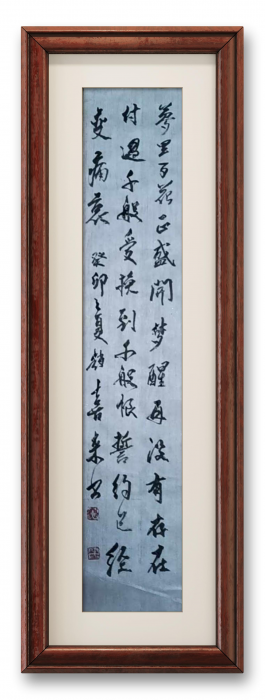 夢里百花正盛開梦醒再没有存在
付過千般愛换到千般恨誓约已經
变痛哀 癸卯之夏喜来书